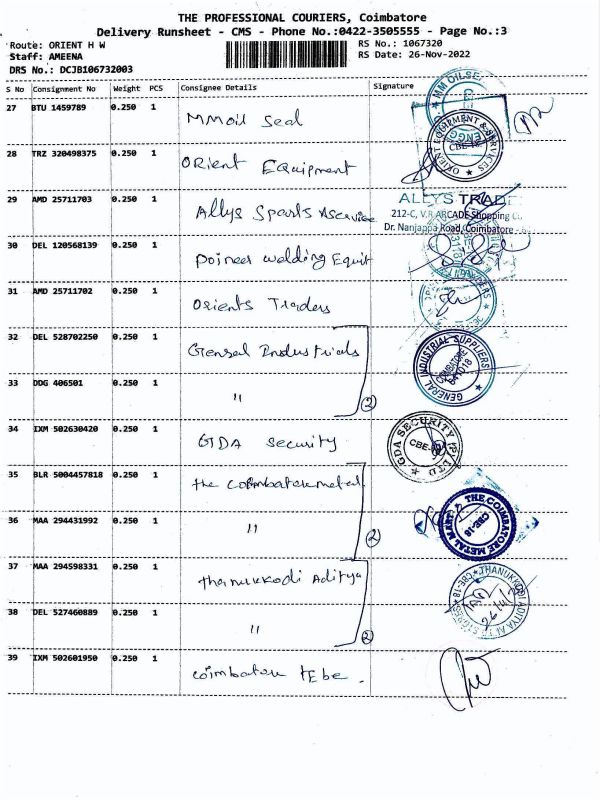 THE PROFESSIONAL COURIERS, Coimbatore
Delivery Runsheet - CMS - Phone No.:0422-3505555 - Page No.:3
Route: ORIENT H W
RS No.: 1067320
Staff: AMEENA
RS Date: 26-Nov-2022
DRS No.: DCJB106732003
S No Consignment No Weight PCS Consignee Details Signature
27 BTU 1459789 0.250 1 MM oil Seal
28 TRZ 320498375 0.250 1 Orient Equipment
29 AMD 25711703 0.250 1 Allys Sparts
30 DEL 120568139 0.250 1 Poineer welding Equit
31 AMD 25711702 0.250 1 Orients Traders
32 DEL 528702250 0.250 1 Gensel Industrials
33 DDG 406501 0.250 1 " 2
34 IXM 502630420 0.250 1 GDA Security
35 BLR 5004457818 0.250 1 the Coimbatore metal
36 MAA 294431992 0.250 1 " 2
37 MAA 294598331 0.250 1 thanukkodi Aditya
38 DEL 527460889 0.250 1 " 2
39 IXM 502601950 0.250 1 Coimbatore
MM OILSEAL
ORIENT EQUIPMENT & SERVICES
CBE-18
ALLYS TRADE
212-C, V.R ARCADE Shopping
Dr. Nanjappa Road, Coimbatore
GENERAL INDUSTRIAL SUPPLIERS
COIMBATORE
641018
GDA SECURITY (P) LTD
THE COIMBATORE METAL MART
CBE-18
THANUKKODI ADITYA
CBE-18